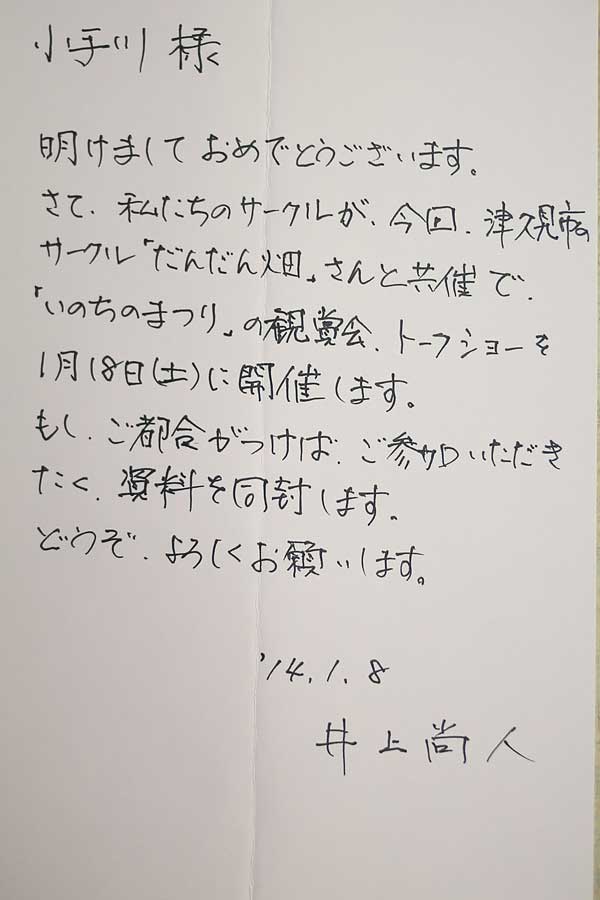 小手川 様
明けまして おめでとうございます。
さて、私たちのサークルが、今回、津久見市の
サークル「だんだん畑」さんと共催で、
「いのちのまつり」の観賞会、トークショーを
1月18日(土)に開催します。
もし、ご都合がつけば、ご参加いただき
たく、資料を同封します。
どうぞ、よろしくお願いします。
'14.1.8
井上尚人